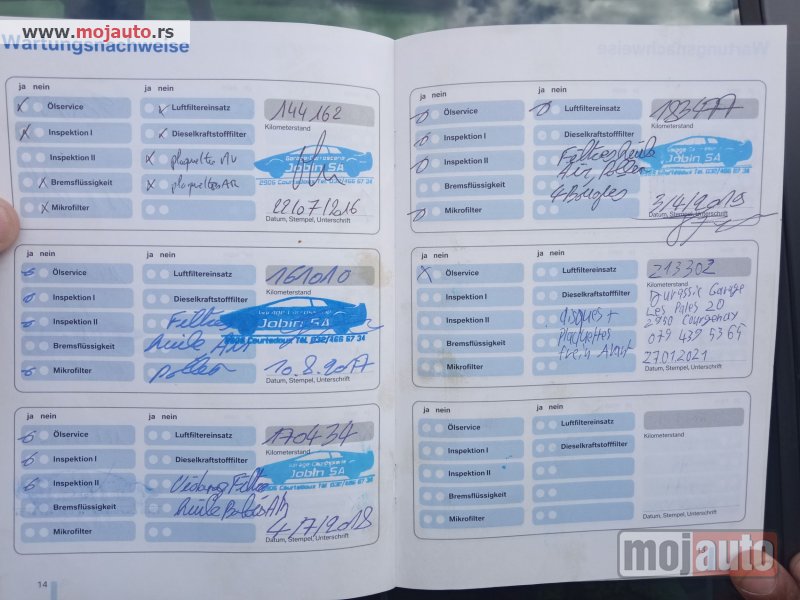 www.mojauto.rs
Wartungsnachweise
ja nein
ja nein
Ölservice
Luftfiltereinsatz
144 162
Kilometerstand
Inspektion I
Dieselkraftstofffilter
Inspektion II
plaquettes AV
Garage Carrosserie
Jobin SA
2905 Courtedoux Tél. 032/466 57 34
Bremsflüssigkeit
plaquettes AR
Mikrofilter
22/07/2016
Datum, Stempel, Unterschrift
ja nein
ja nein
Ölservice
Luftfiltereinsatz
161010
Kilometerstand
Inspektion I
Dieselkraftstofffilter
Inspektion II
Filtres
Jobin SA
2905 Courtedoux Tél. 032/466 57 34
Bremsflüssigkeit
Huile Air
Mikrofilter
pollen
10.8.2017
Datum, Stempel, Unterschrift
ja nein
ja nein
Ölservice
Luftfiltereinsatz
170434
Kilometerstand
Inspektion I
Dieselkraftstofffilter
Inspektion II
Vidange Filtre
Jobin SA
2905 Courtedoux Tél. 032/466 57 34
Bremsflüssigkeit
Huile
Mikrofilter
4/7/2018
Datum, Stempel, Unterschrift
14
ja nein
ja nein
Ölservice
Luftfiltereinsatz
193477
Kilometerstand
Inspektion I
Dieselkraftstofffilter
Inspektion II
Filtres Huile
Air, Pollen
Jobin SA
Bremsflüssigkeit
4 Bougies
Mikrofilter
3/4/2019
Datum, Stempel, Unterschrift
ja nein
ja nein
Ölservice
Luftfiltereinsatz
213302
Kilometerstand
Inspektion I
Dieselkraftstofffilter
Jurassic Garage
Les Pales 20
Inspektion II
disques +
2950 Courgenay
Bremsflüssigkeit
plaquettes
079 439 53 65
Mikrofilter
frein Avant
27.01.2021
Datum, Stempel, Unterschrift
ja nein
ja nein
Ölservice
Luftfiltereinsatz
Kilometerstand
Inspektion I
Dieselkraftstofffilter
Inspektion II
Bremsflüssigkeit
Mikrofilter
Datum, Stempel, Unterschrift
mojauto